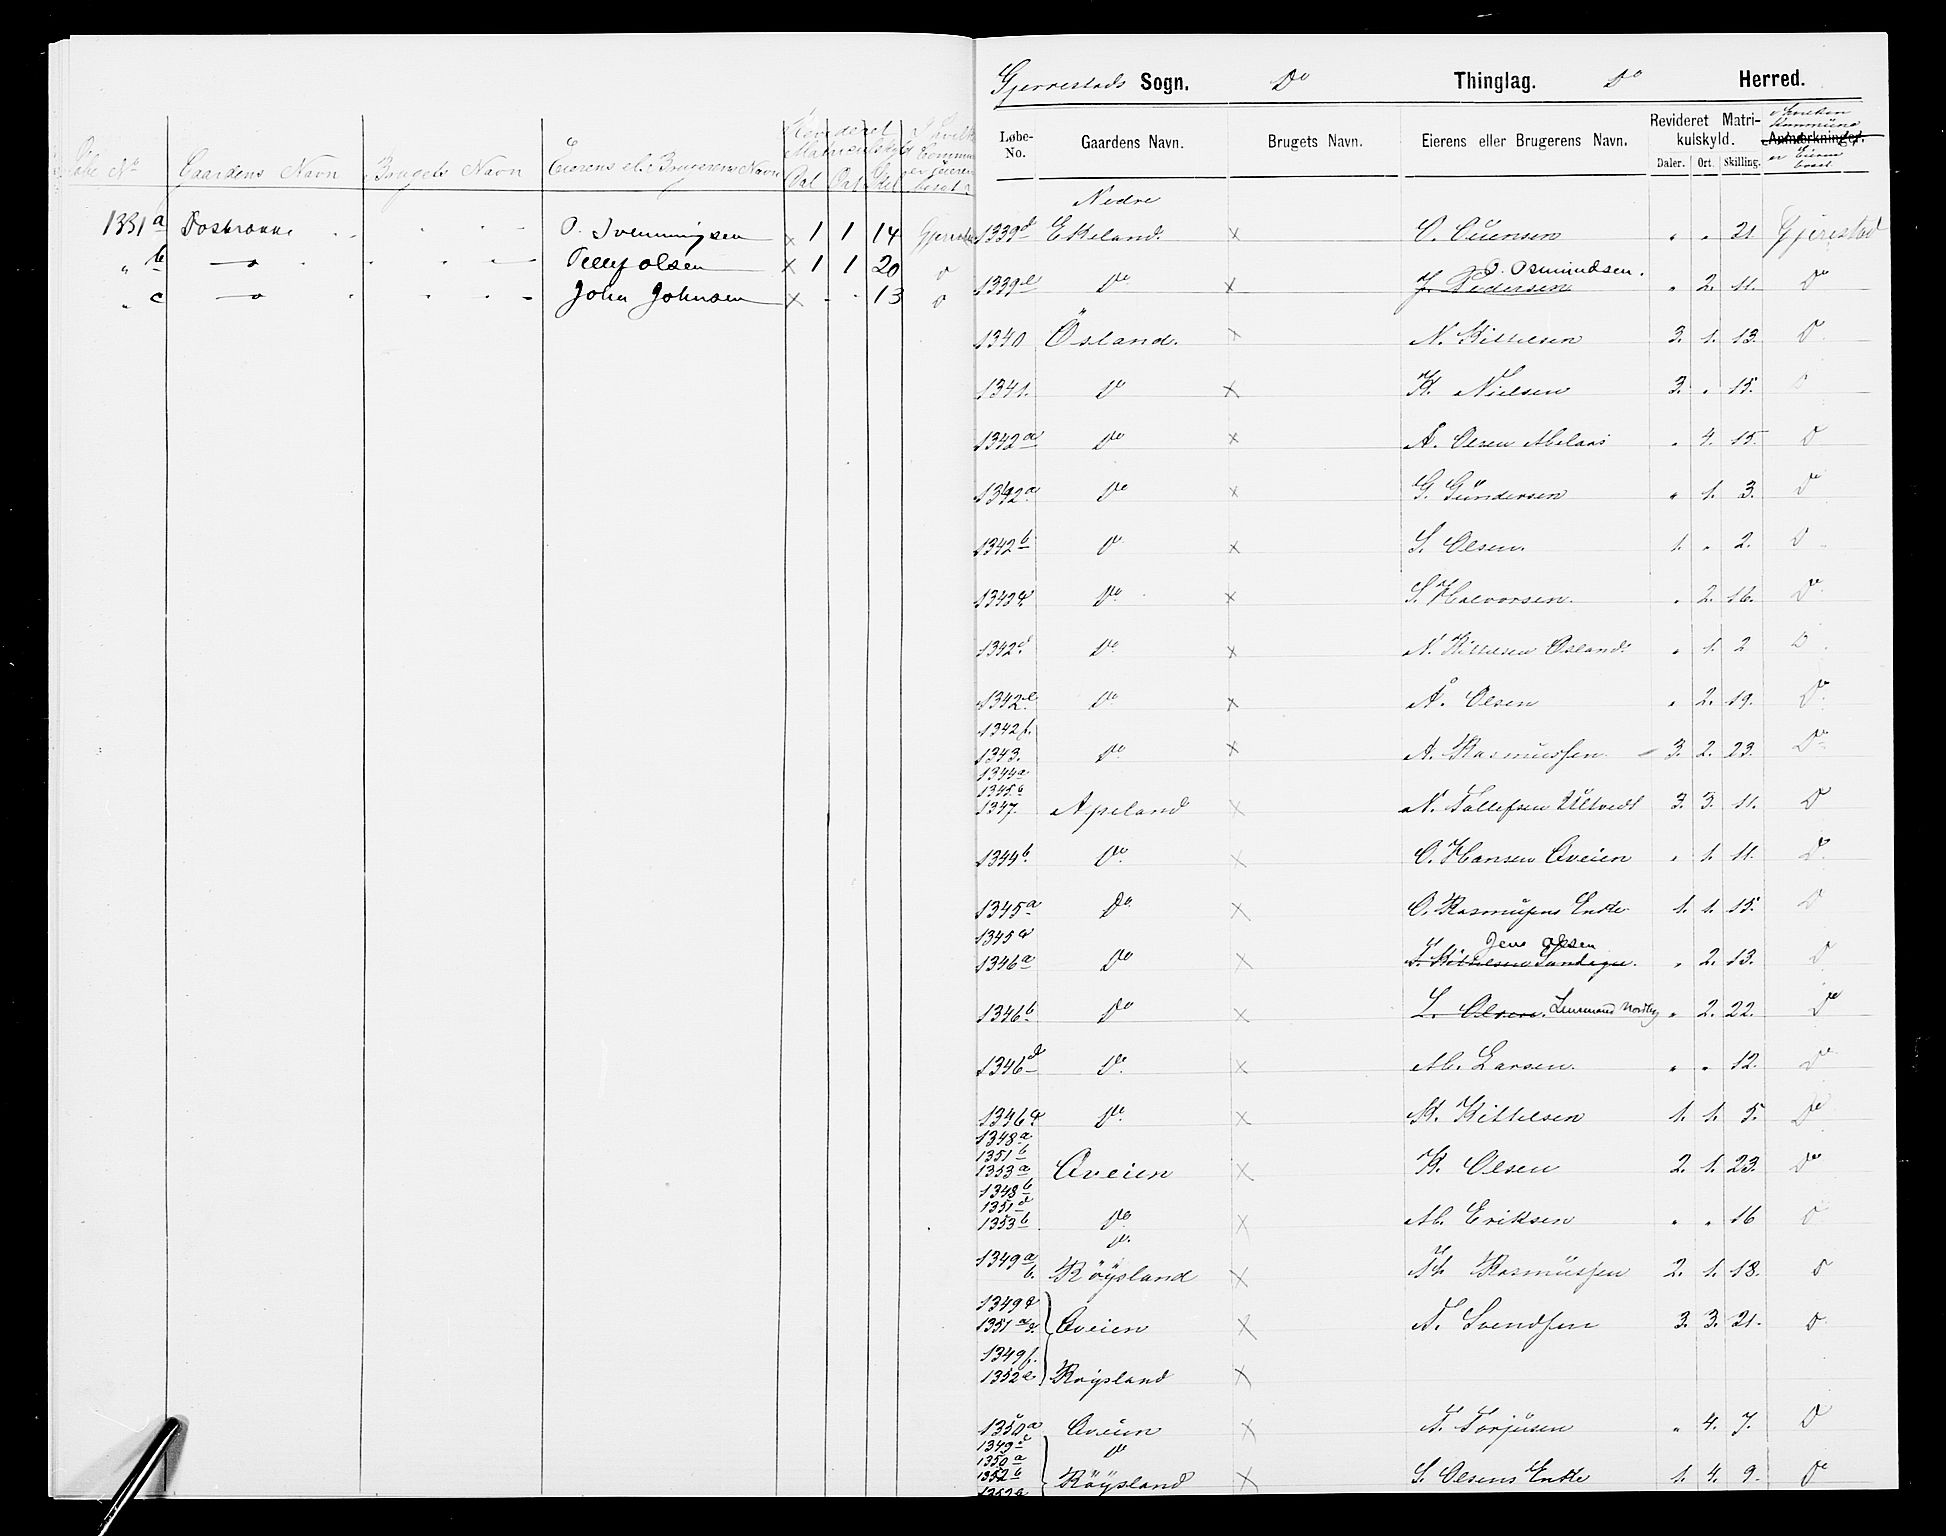 Løbe No Gaardens Navn Brugets Navn Eierens el. Brugerens Navn Revideret Matriculskyld Dal Ort Skil
1331 a P. Svenningsen x 1 1 14
" b — Tellef Olsen x 1 1 20 Do
" c — John Johnsen x - - 13 Do
Gjerrestads Sogn. Do Thinglag. Do Herred.
Løbe-No. Gaardens Navn. Brugets Navn. Eierens eller Brugerens Navn. Revideret Matrikulskyld. Daler. Ort. Skilling. Anmærkninger.
Nedre
1339d Ekeland. x O. " " 21. Gjerestad
O. Osmundsen.
1339e Do x J. Pedersen " 2. 11. Do
1340 Ösland. x N. Kittelsen 3. 1. 13. Do
1341. Do x K. Nielsen 3. " 15. Do
1342 Do x A. Olsen " 4. 15. Do
1342a Do x G. Gundersen " 1. 3. Do
1342b Do x S. Olsen. 1. " 2. Do
1342c Do x S. Halvorsen. " 2. 16. Do
1342d Do x N. Kittelsen Osland. " 1. 2 Do
1342e Do x A. Olsen " 2. 19. Do
1342f.
1343. Do x A. Rasmussen 3. 2. 23. Do
1344a
1345b
1347. Apeland x N. Tallefsen Ultvedt 3. 3. 11. Do
1344b Do x O. Hansen Aveien " 1. 11. Do
1345a Do x O. Rasmusens Enke 1. 1. 15. Do
1345c Jens Olsen
1346a Do x T. Kittelsen " 2. 13. Do
1346b Do x L. Olsen. Lensmand Nordby " 2. 22. Do
1346d Do x Ab. Larsen. " " 12. Do
1346c Do x K. Kittelsen 1. 1. 5. Do
1348a
1351b
1353a Aveien x K. Olsen 2. 1. 23. Do
1348b
1351d
1353b Do x Ab. Eriksen " " 16 Do
Do
1349a b. Röysland x Rasmussen 2. 1. 18. Do
1349c
1351a Aveien x T. Svendsen 3. 3. 21. Do
1349f.
1352c. Röysland x
1350a Aveien x T. Torjusen " 4. 7. Do
1349d Do
1350a
1352b Röysland x S. Olsens Enke 1. 4. 9. Do